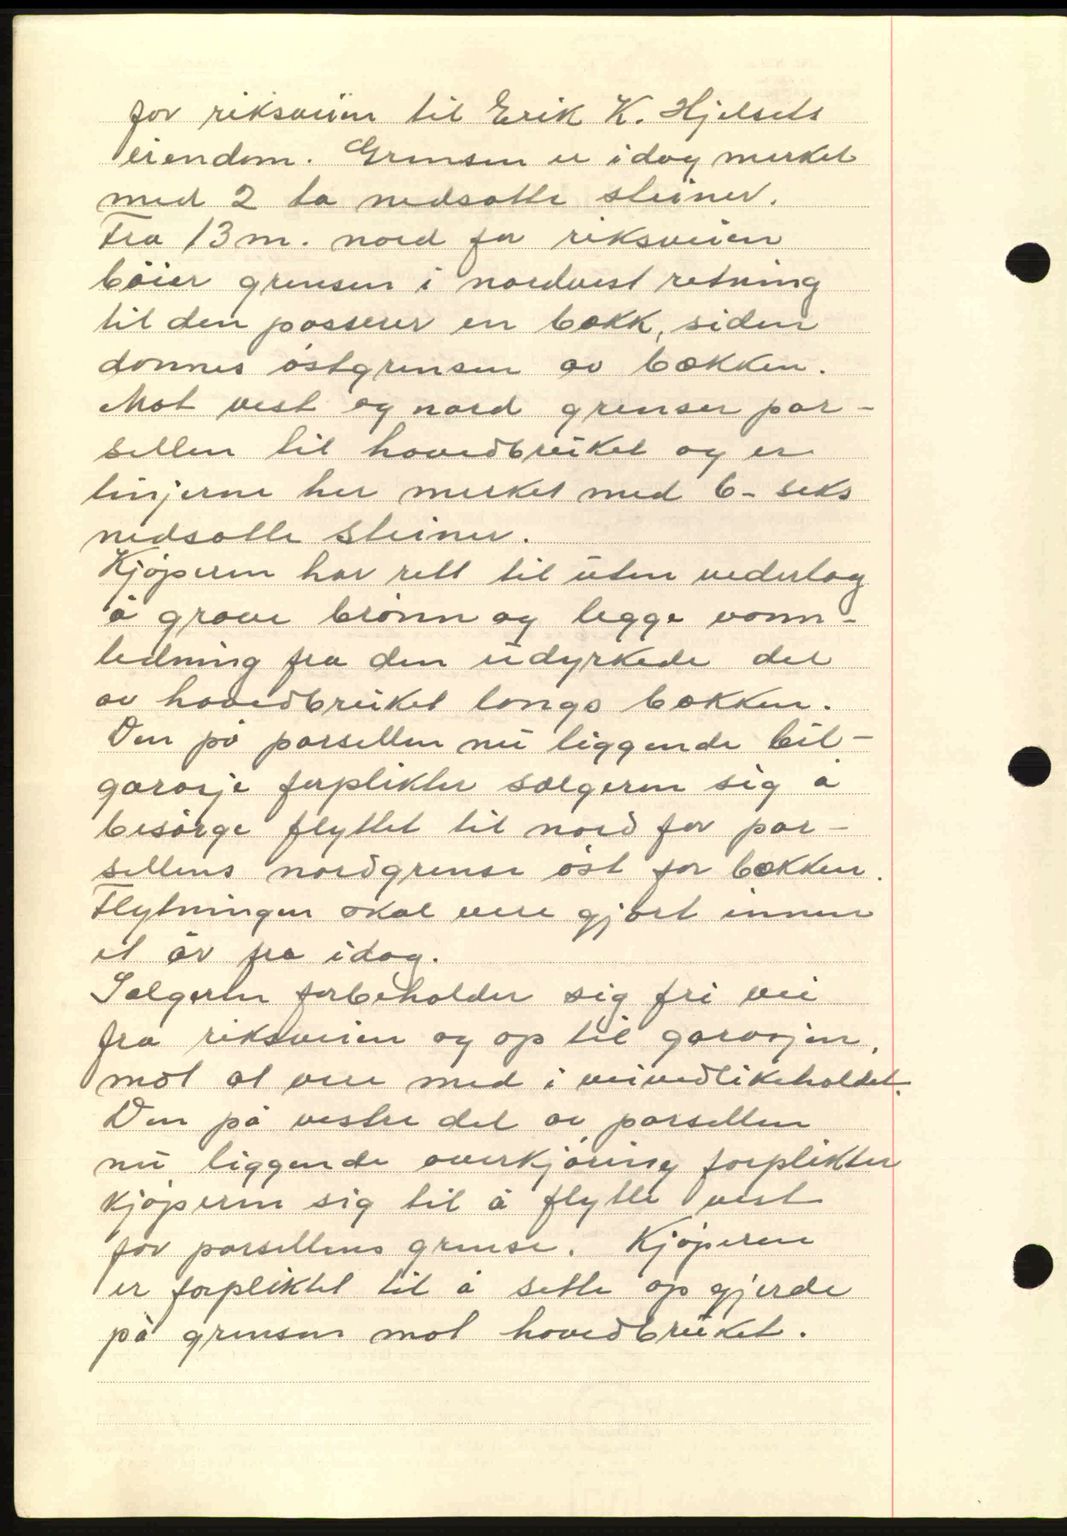 for riksveien til Erik K. Hjelsets
eiendom. Grensen er idag merket
med 2 to nedsatte steiner.
Fra 13 m. nord for riksveien
böier grensen i nordvest retning
til den passerer en bækk, siden
dannes östgrensen av bækken.
Mot vest og nord grenser par-
sellen til hovedbruket og er
linjerne her merket med 6- seks
nedsatte steiner.
Kjöperen har rett til uten vederlag
å grave brönn og legge vann-
ledning fra den udyrkede del
av hovedbruket langs bækken.
Den på parsellen nu liggende bil-
garasje forplikter sælgeren sig å
besörge flyttet til nord for par-
sellens nordgrense öst for bækken.
Flytningen skal være gjort innen
et år fra idag.
Sælgeren forbeholder sig fri vei
fra riksveien og op til garasjen,
mot at være med i veivedlikeholdet.
Den på vestre del av parsellen
nu liggende overkjöring forplikter
kjöperen sig til å flytte vest
for parsellens grense. Kjöperen
er forpliktet til å sette op gjerde
på grensen mot hovedbruket.